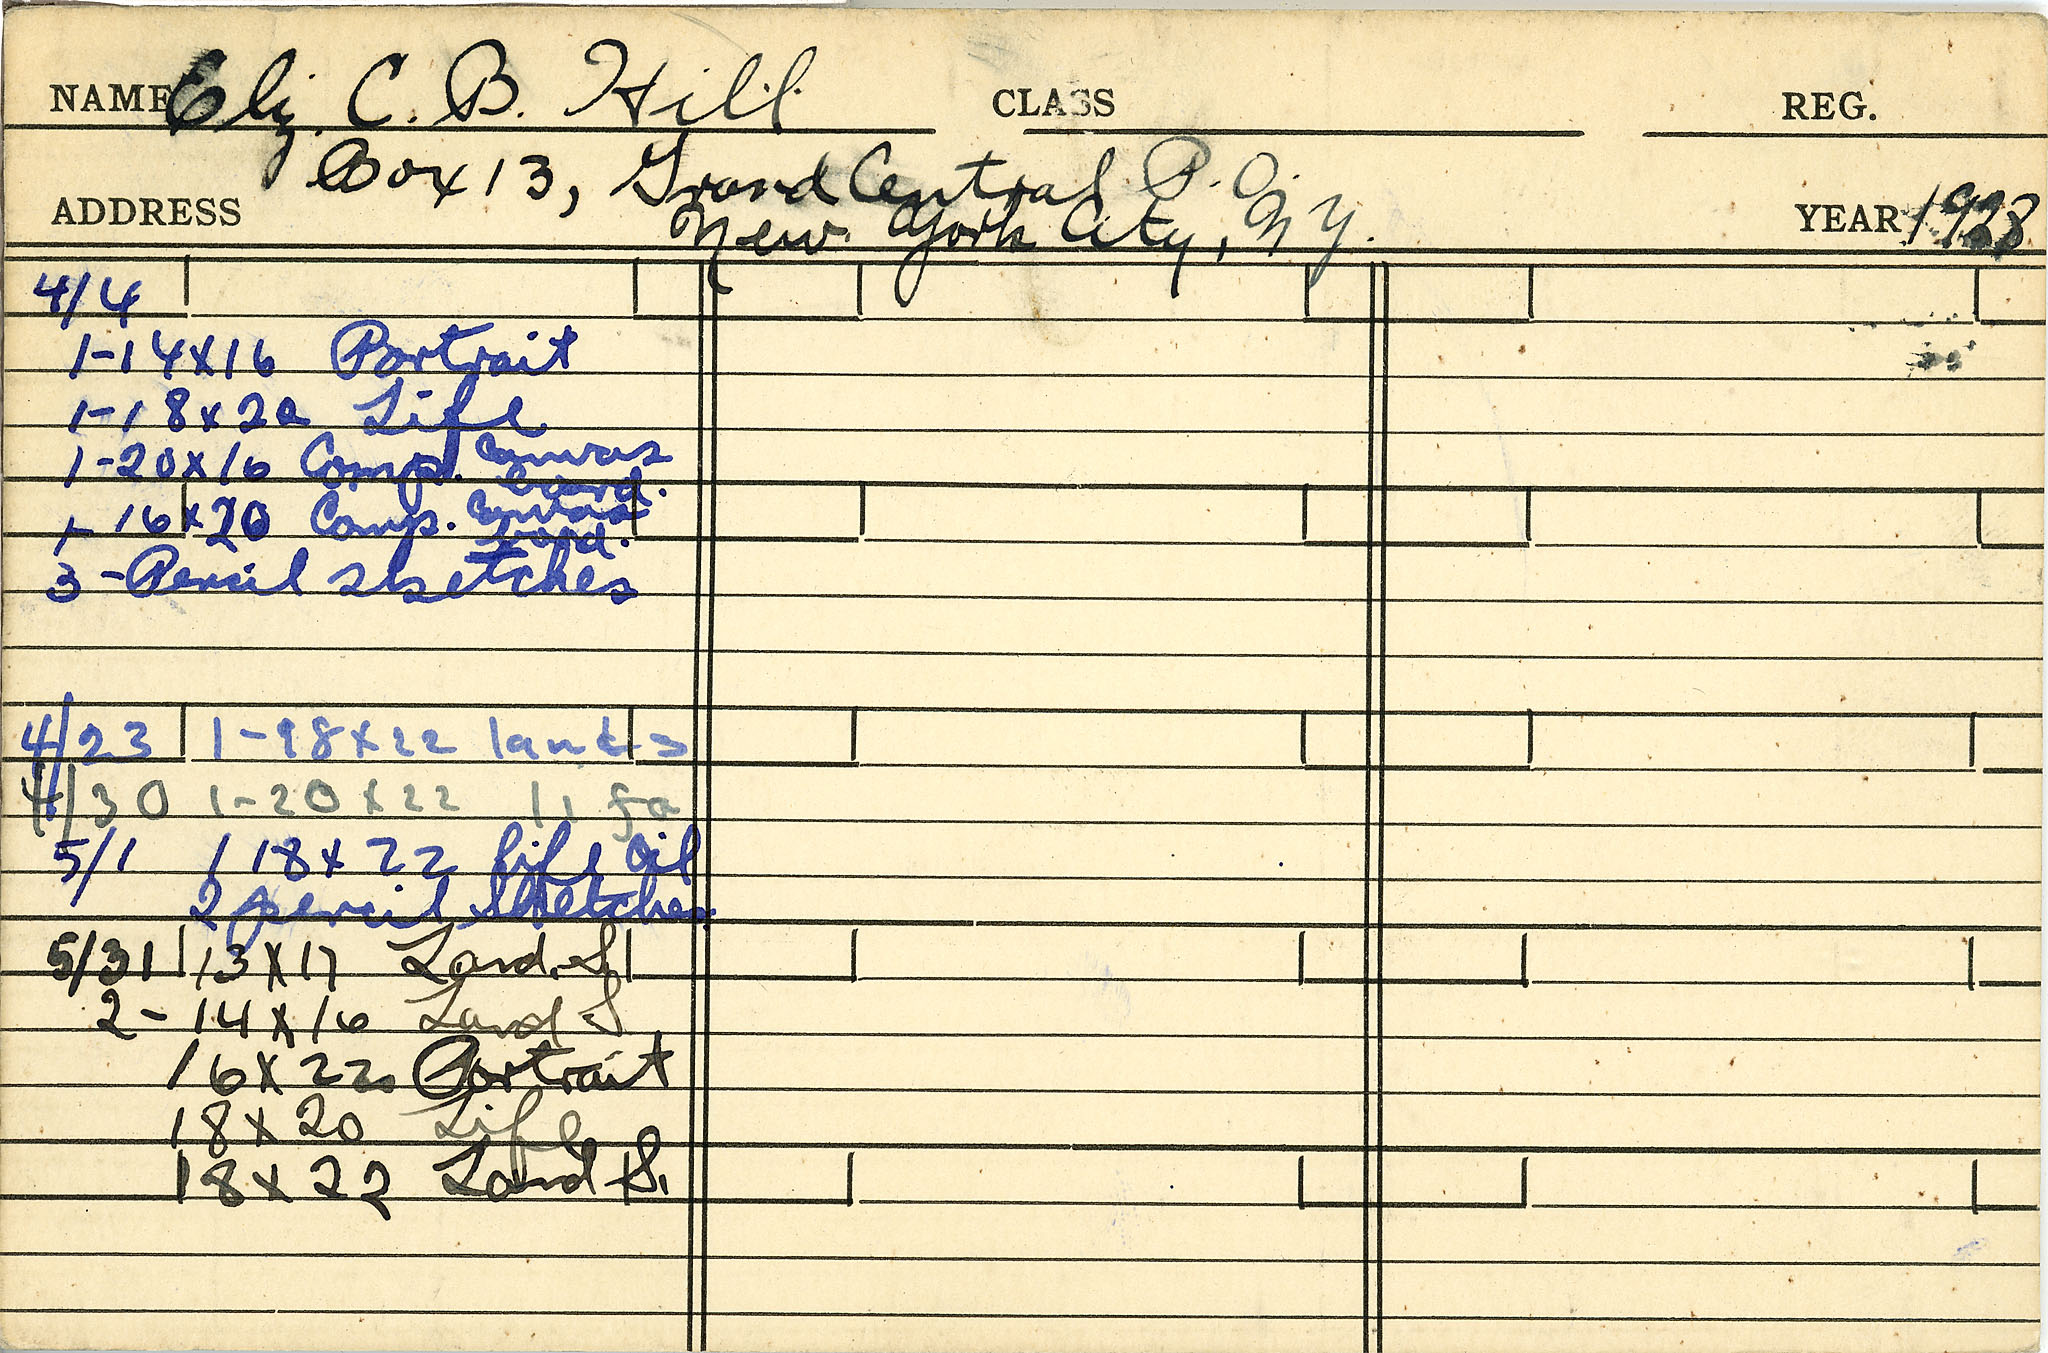 NAME Eliz. C. B. Hill CLASS REG.
Box 13, Grand Central P. O.
ADDRESS New York City, N.Y. YEAR 1928
4/4
1-14x16 Portrait
1-18x20 Life
1-20x16 Comp. Canvas
board.
1-16x20 Comp. Canvas
board.
3-Pencil sketches
4/23 1-98x22 lands
4/30 1-20x22
5/1 1 18x22 Life Oil
2 pencil sketches.
5/31 13x17 Land. S.
2-14x16 Land S
16x22 Portrait
18x20 Life
18x22 Land S.